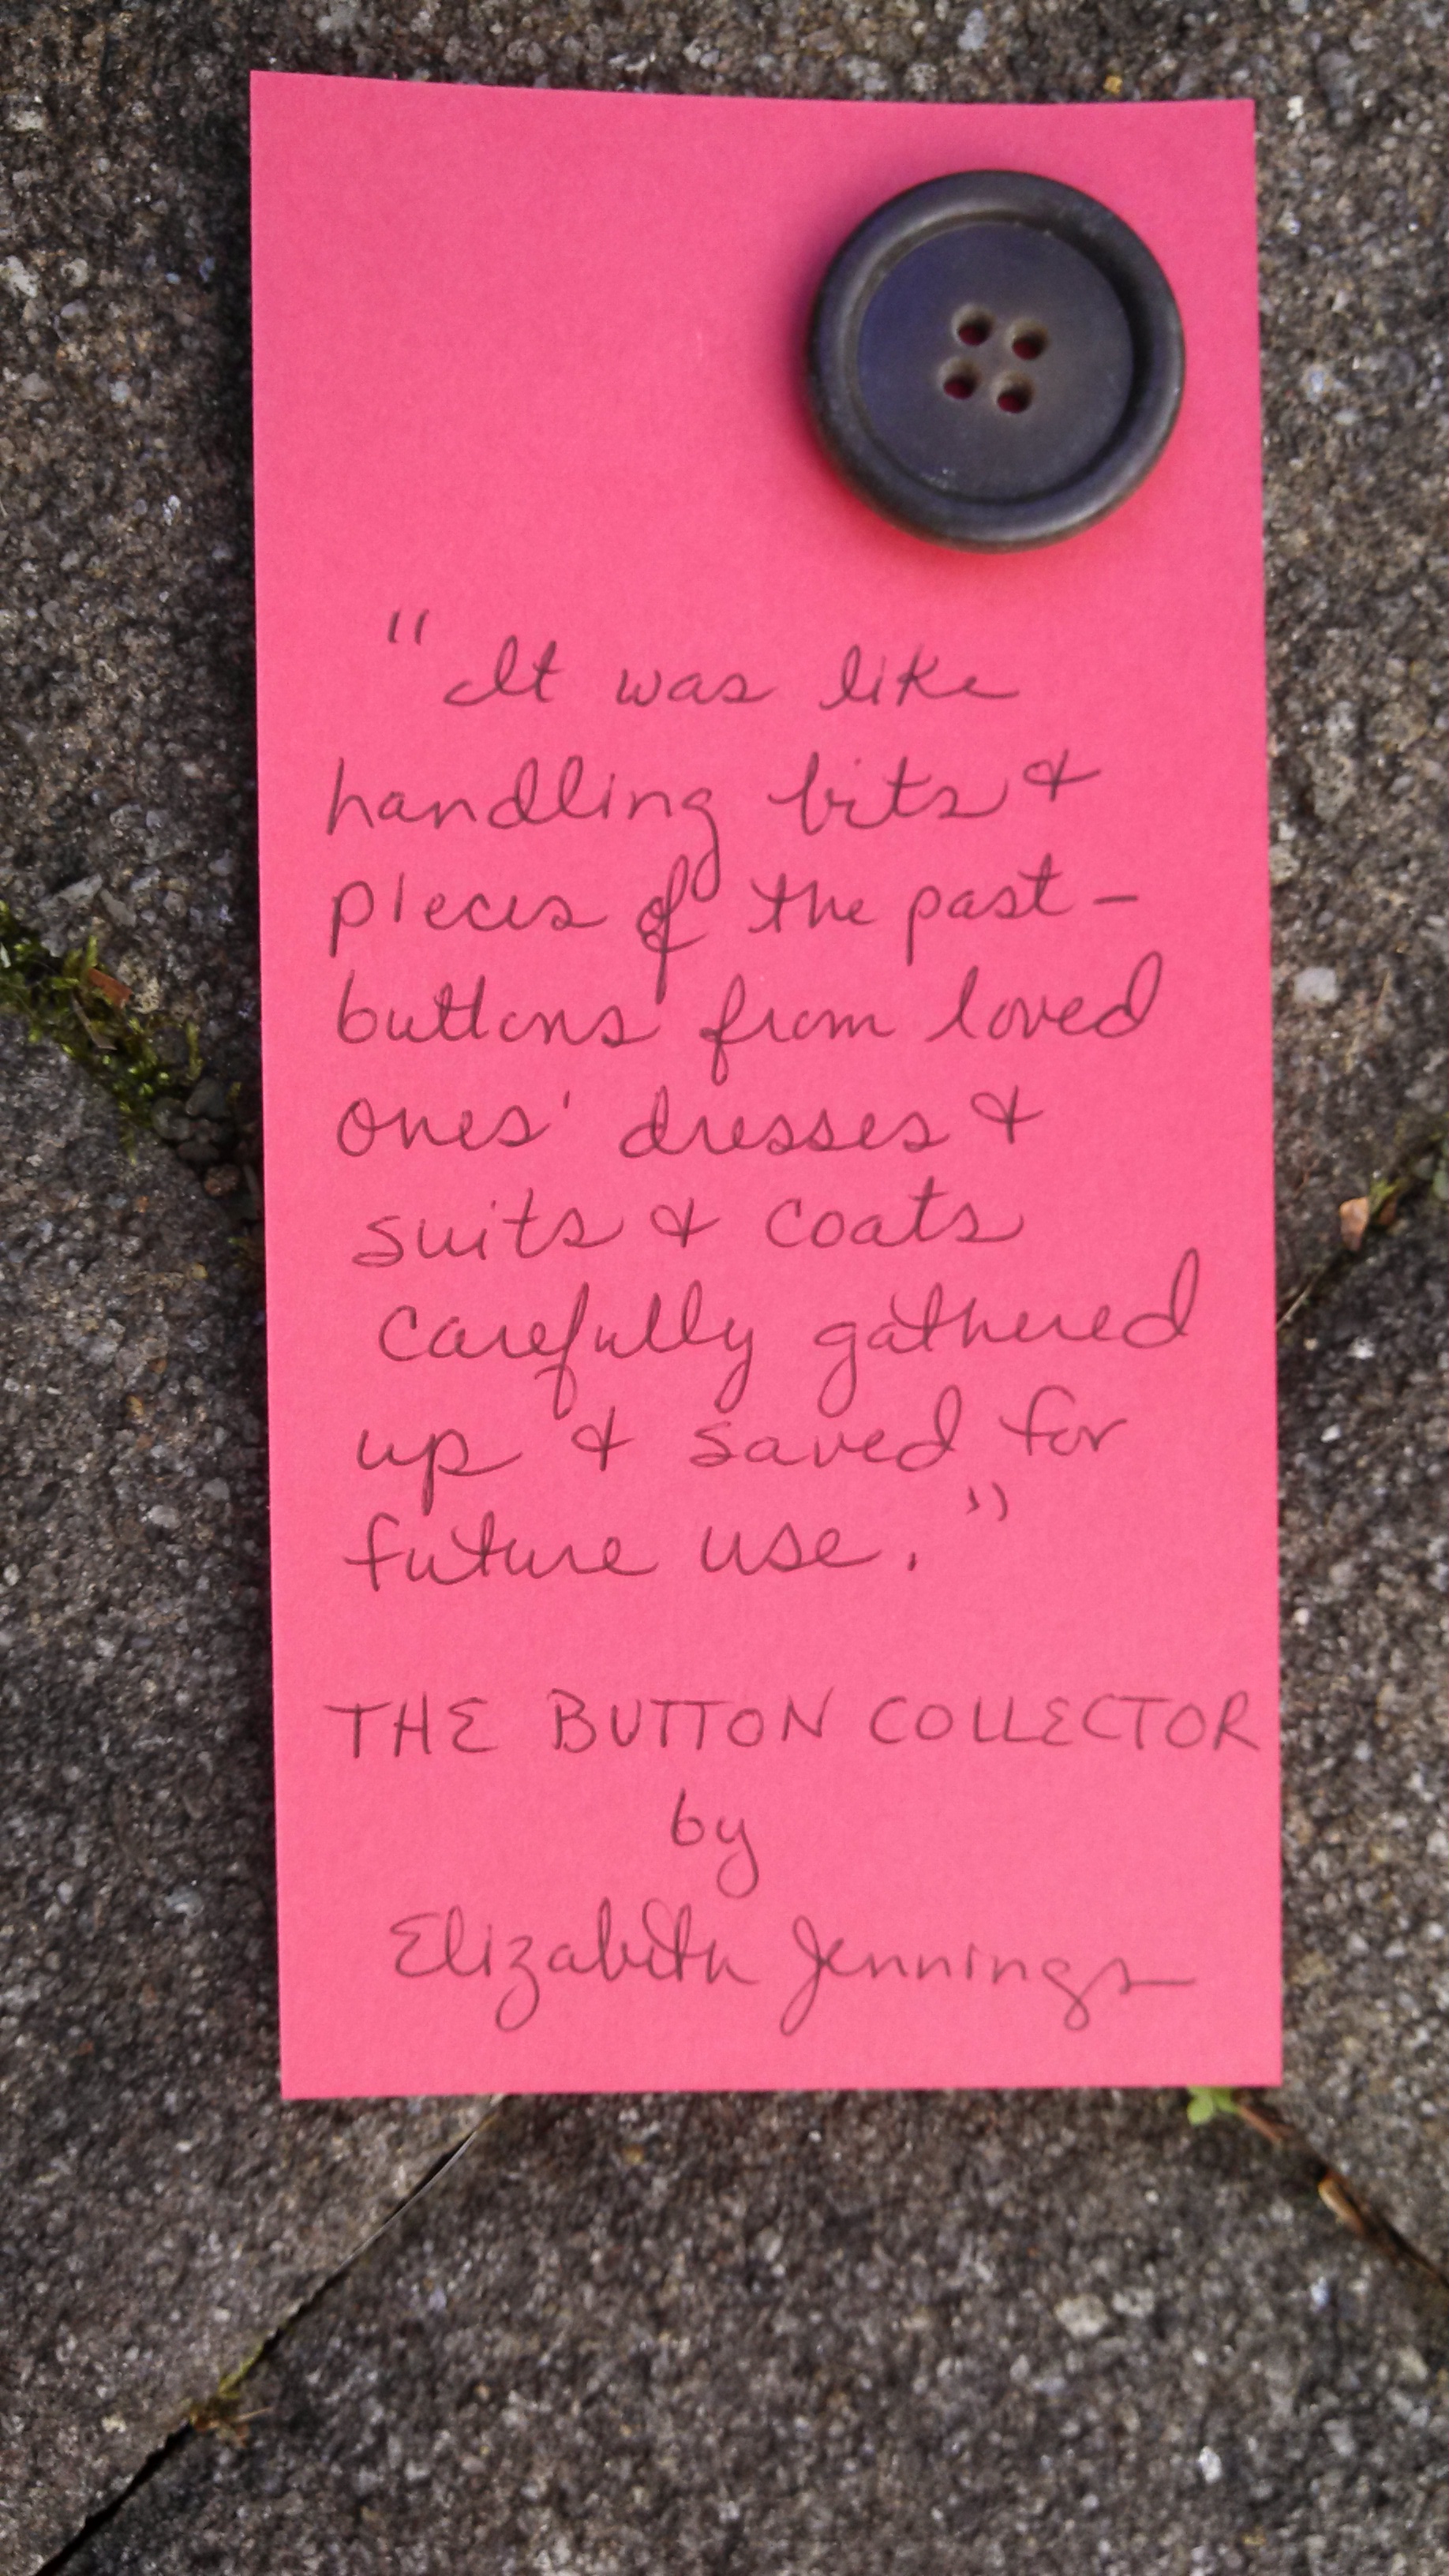 "It was like
handling bits &
pieces of the past -
buttons from loved
ones' dresses &
suits & coats
carefully gathered
up & saved for
future use."
THE BUTTON COLLECTOR
by
Elizabeth Jennings